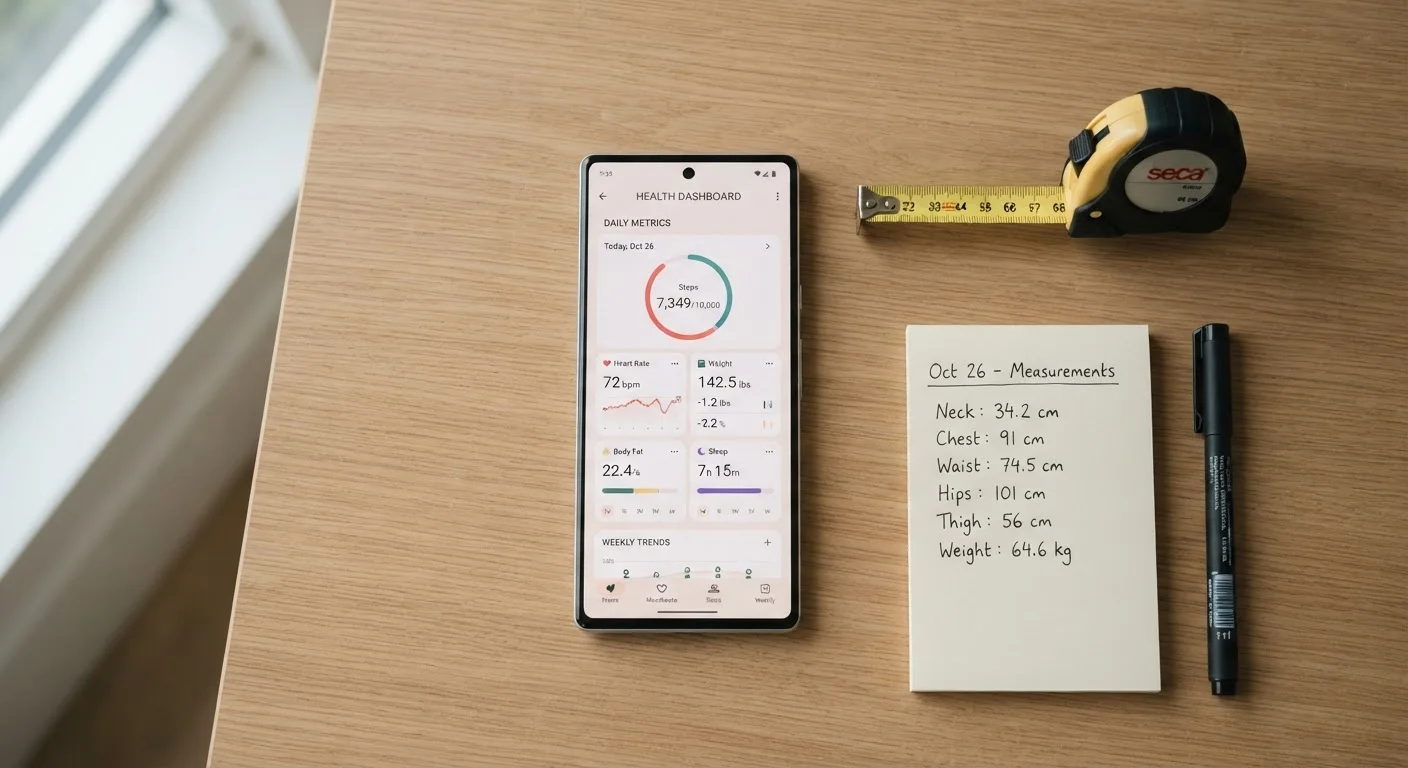 HEALTH DASHBOARD
DAILY METRICS
Today, Oct 26
Steps
7,349/10,000
Heart Rate
72 bpm
Weight
142.5 lbs
-1.2 lbs
-2.2 %
Body Fat
22.4
Sleep
7h 15m
WEEKLY TRENDS
seca
Oct 26 - Measurements
Neck: 34.2 cm
Chest: 91 cm
Waist: 74.5 cm
Hips: 101 cm
Thigh: 56 cm
Weight: 64.6 kg